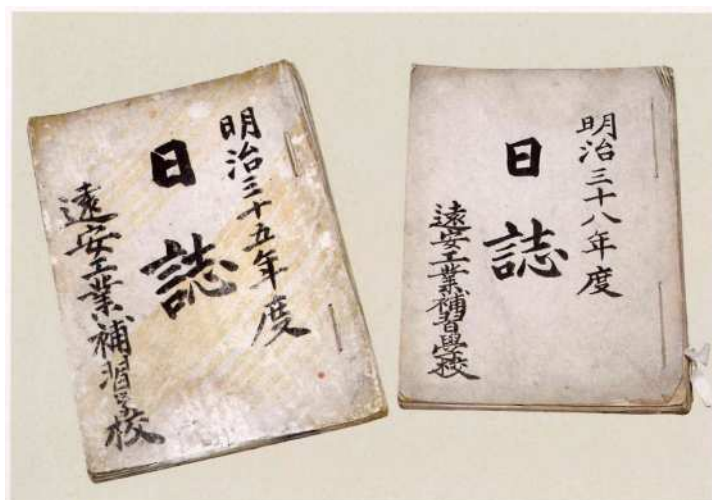 明治三十五年度
日誌
遠安工業補習学校
明治三十八年度
日誌
遠安工業補習學校